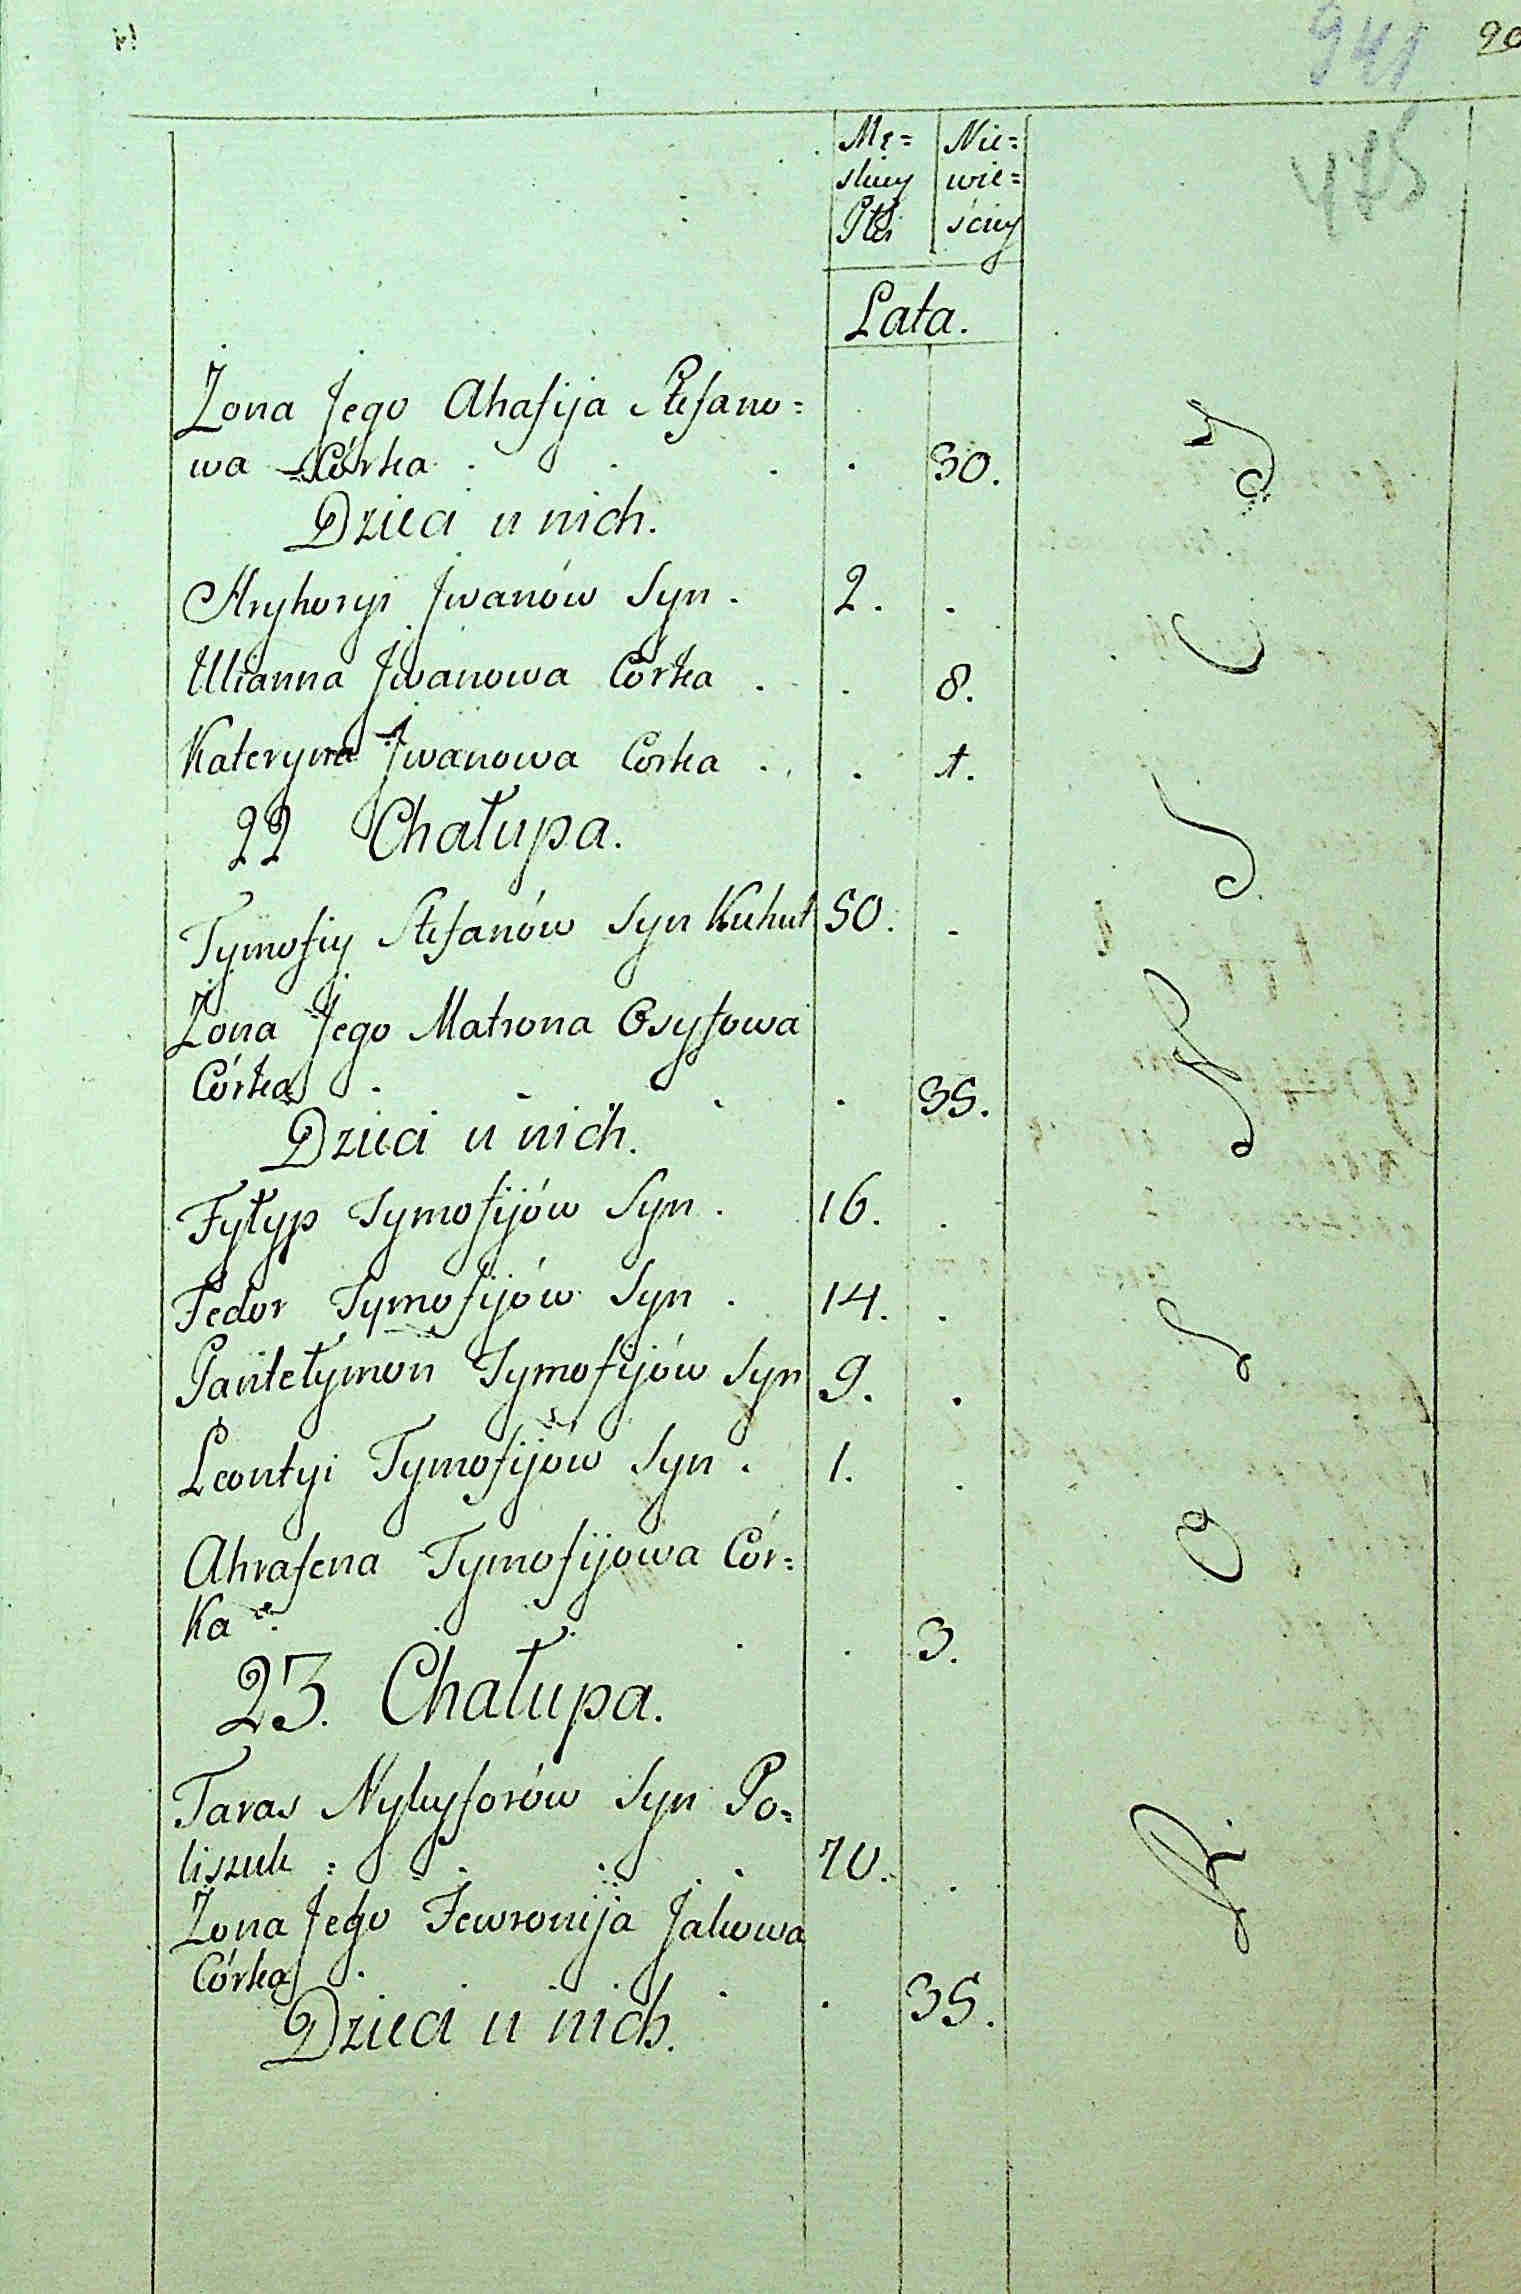 941 90
475
Mę= Nie=
skiey wie=
Płci ściey
Lata.
Żona Jego Ahafija Stefano=
wa Córka . . . . 30.
Dzieci u nich.
Hryhoryi Jwanów Syn . 2. .
Ulianna Jwanowa Córka . . 8.
Kateryna Jwanowa Corka . . 1.
22 Chałupa.
Tymofiy Stefanów Syn Kuhut 50. .
Żona Jego Matrona Osyfowa
Córka . . . . 35.
Dzieci u nich.
Fyłyp Tymofijów Syn . 16. .
Fedor Tymofijów Syn . 14. .
Pantełymon Tymofijów Syn 9. .
Leontyi Tymofijów Syn . 1. .
Ahrafena Tymofijowa Cór=
Ka . . . . 3.
23. Chałupa.
Taras Nykyforów Syn Po=
liszuk . . . 70. .
Żona Jego Fewronija Jakowa
Córka . . . . 35.
Dzieci u nich.